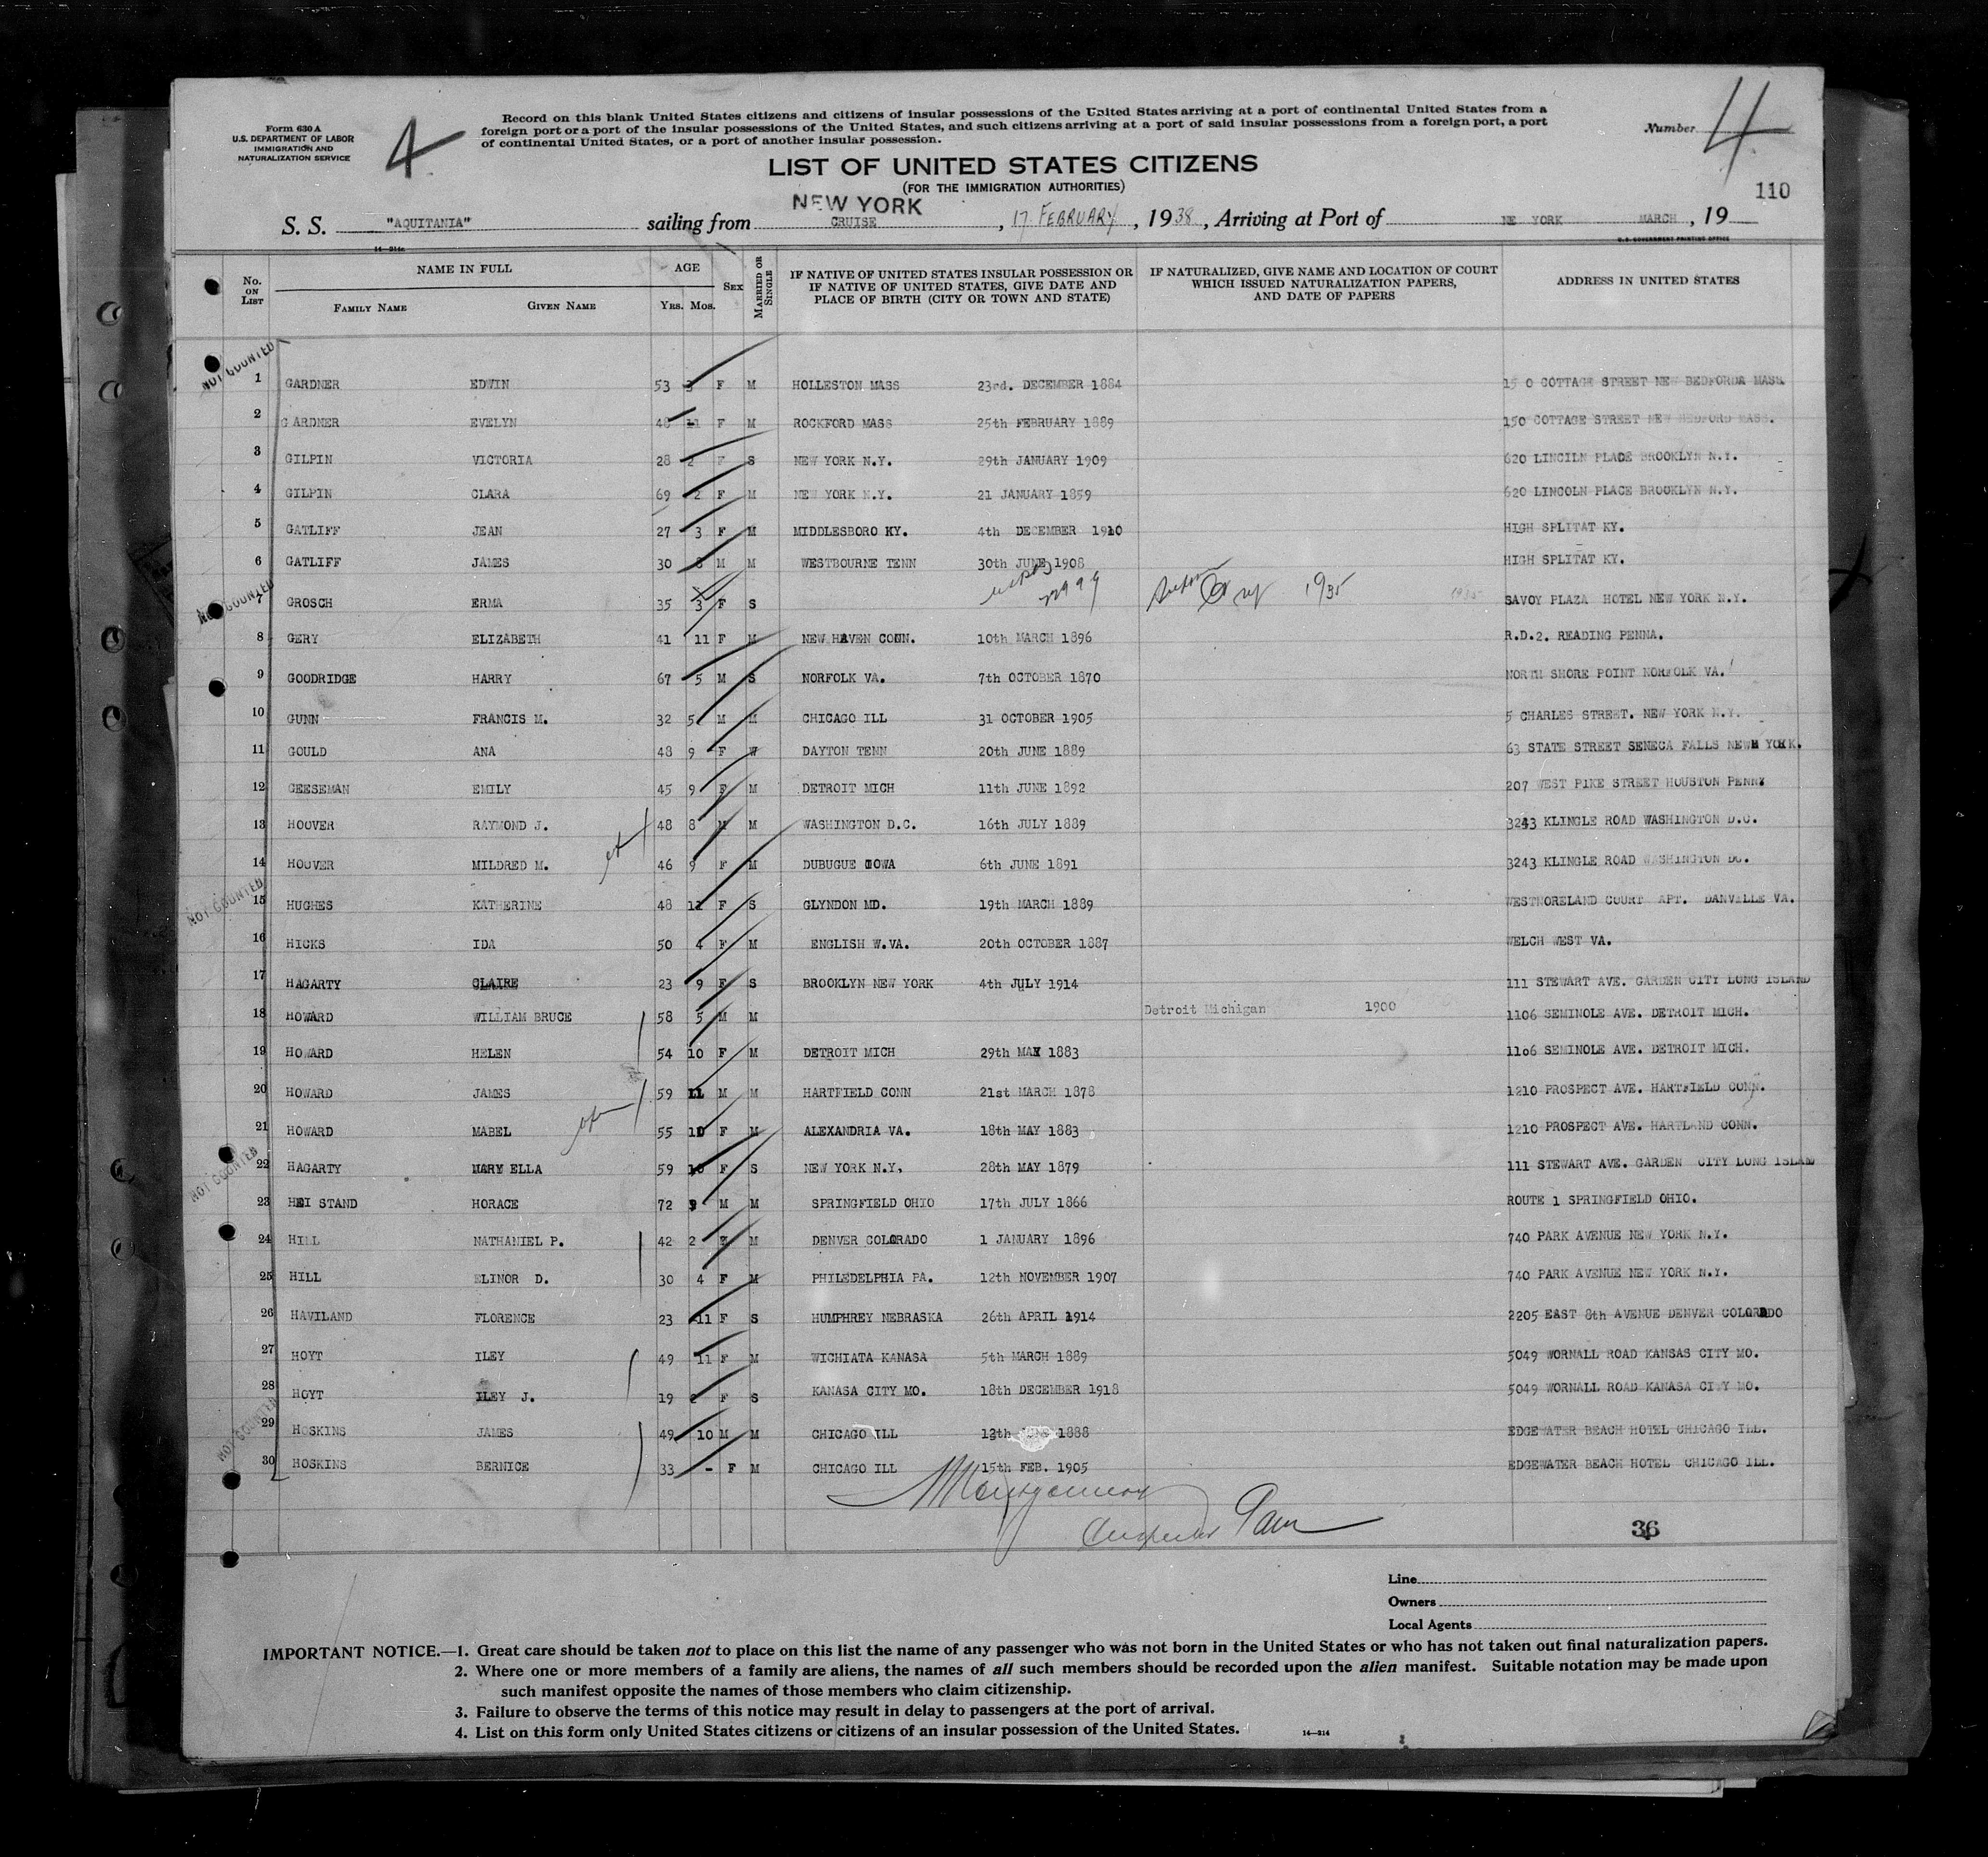 Form 630 A
U.S. DEPARTMENT OF LABOR
IMMIGRATION AND
NATURALIZATION SERVICE
4
Record on this blank United States citizens and citizens of insular possessions of the United States arriving at a port of continental United States from a
foreign port or a port of the insular possessions of the United States, and such citizens arriving at a port of said insular possessions from a foreign port, a port
of continental United States, or a port of another insular possession.
Number 4
LIST OF UNITED STATES CITIZENS
(FOR THE IMMIGRATION AUTHORITIES)
110
NEW YORK
S. S. "AQUITANIA" sailing from CRUISE, 17 FEBRUARY, 1938, Arriving at Port of NE YORK MARCH, 19
14—214a
U.S. GOVERNMENT PRINTING OFFICE
No. ON LIST NAME IN FULL AGE SEX MARRIED OR SINGLE IF NATIVE OF UNITED STATES INSULAR POSSESSION OR IF NATIVE OF UNITED STATES, GIVE DATE AND PLACE OF BIRTH (CITY OR TOWN AND STATE) IF NATURALIZED, GIVE NAME AND LOCATION OF COURT WHICH ISSUED NATURALIZATION PAPERS, AND DATE OF PAPERS ADDRESS IN UNITED STATES
FAMILY NAME GIVEN NAME YRS. MOS.
NOT COUNTED
1 GARDNER EDWIN 53 3 F M HOLLESTON MASS 23rd. DECEMBER 1884 15 0 COTTAGE STREET NEW BEDFORDA MASS
2 G ARDNER EVELYN 48 11 F M ROCKFORD MASS 25th FEBRUARY 1889 150 COTTAGE STREET NEW BEDFORD MASS.
3 GILPIN VICTORIA 28 2 F S NEW YORK N.Y. 29th JANUARY 1909 620 LINCILN PLACE BROOKLYN N.Y.
4 GILPIN CLARA 69 2 F M NEW YORK N.Y. 21 JANUARY 1859 620 LINCOLN PLACE BROOKLYN N.Y.
5 GATLIFF JEAN 27 3 F M MIDDLESBORO KY. 4th DECEMBER 1910 HIGH SPLITAT KY.
6 GATLIFF JAMES 30 8 M M WESTBOURNE TENN 30th JUNE 1908 HIGH SPLITAT KY.
NOT COUNTED
7 GROSCH ERMA 35 3 F S 1935 1935 SAVOY PLAZA HOTEL NEW YORK N.Y.
8 GERY ELIZABETH 41 11 F M NEW HAVEN CONN. 10th MARCH 1896 R.D.2. READING PENNA.
9 GOODRIDGE HARRY 67 5 M S NORFOLK VA. 7th OCTOBER 1870 NORTH SHORE POINT NORFOLK VA.
10 GUNN FRANCIS M. 32 5 M M CHICAGO ILL 31 OCTOBER 1905 5 CHARLES STREET. NEW YORK N.Y.
11 GOULD ANA 48 9 F W DAYTON TENN 20th JUNE 1889 63 STATE STREET SENECA FALLS NEWH YORK.
12 GEESEMAN EMILY 45 9 F M DETROIT MICH 11th JUNE 1892 207 WEST PIKE STREET HOUSTON PENNY
13 HOOVER RAYMOND J. 48 8 M M WASHINGTON D.C. 16th JULY 1889 3243 KLINGLE ROAD WASHINGTON D.C.
14 HOOVER MILDRED M. 46 9 F M DUBUGUE IOWA 6th JUNE 1891 3243 KLINGLE ROAD WASHINGTON DC.
NOT COUNTED
15 HUGHES KATHERINE 48 11 F S GLYNDON MD. 19th MARCH 1889 WESTMORELAND COURT APT. DANVILLE VA.
16 HICKS IDA 50 4 F M ENGLISH W.VA. 20th OCTOBER 1887 WELCH WEST VA.
17 HAGARTY CLAIRE 23 9 F S BROOKLYN NEW YORK 4th JULY 1914 111 STEWART AVE. GARDEN CITY LONG ISLAND
18 HOWARD WILLIAM BRUCE 58 5 M M Detroit Michigan 1900 1106 SEMINOLE AVE. DETROIT MICH.
19 HOWARD HELEN 54 10 F M DETROIT MICH 29th MAY 1883 1106 SEMINOLE AVE. DETROIT MICH.
20 HOWARD JAMES 59 11 M M HARTFIELD CONN 21st MARCH 1878 1210 PROSPECT AVE. HARTFIELD CONN.
21 HOWARD MABEL 55 10 F M ALEXANDRIA VA. 18th MAY 1883 1210 PROSPECT AVE. HARTLAND CONN.
NOT COUNTED
22 HAGARTY MARY ELLA 59 10 F S NEW YORK N.Y, 28th MAY 1879 111 STEWART AVE. GARDEN CITY LONG ISLAND
23 HEI STAND HORACE 72 9 M M SPRINGFIELD OHIO 17th JULY 1866 ROUTE 1 SPRINGFIELD OHIO.
24 HILL NATHANIEL P. 42 2 M M DENVER COLORADO 1 JANUARY 1896 740 PARK AVENUE NEW YORK N.Y.
25 HILL ELINOR D. 30 4 F M PHILEDELPHIA PA. 12th NOVEMBER 1907 740 PARK AVENUE NEW YORK N.Y.
26 HAVILAND FLORENCE 23 11 F S HUMPHREY NEBRASKA 26th APRIL 1914 2205 EAST 8th AVENUE DENVER COLORADO
27 HOYT ILEY 49 11 F M WICHIATA KANASA 5th MARCH 1889 5049 WORNALL ROAD KANSAS CITY MO.
28 HOYT ILEY J. 19 2 F S KANASA CITY MO. 18th DECEMBER 1918 5049 WORNALL ROAD KANASA CITY MO.
NOT COUNTED
29 HOSKINS JAMES 49 10 M M CHICAGO ILL 12th 1888 EDGEWATER BEACH HOTEL CHICAGO ILL.
30 HOSKINS BERNICE 33 - F M CHICAGO ILL 15th FEB. 1905 EDGEWATER BEACH HOTEL CHICAGO ILL.
36
Line
Owners
Local Agents
IMPORTANT NOTICE.—1. Great care should be taken not to place on this list the name of any passenger who was not born in the United States or who has not taken out final naturalization papers.
2. Where one or more members of a family are aliens, the names of all such members should be recorded upon the alien manifest. Suitable notation may be made upon
such manifest opposite the names of those members who claim citizenship.
3. Failure to observe the terms of this notice may result in delay to passengers at the port of arrival.
4. List on this form only United States citizens or citizens of an insular possession of the United States. 14—214